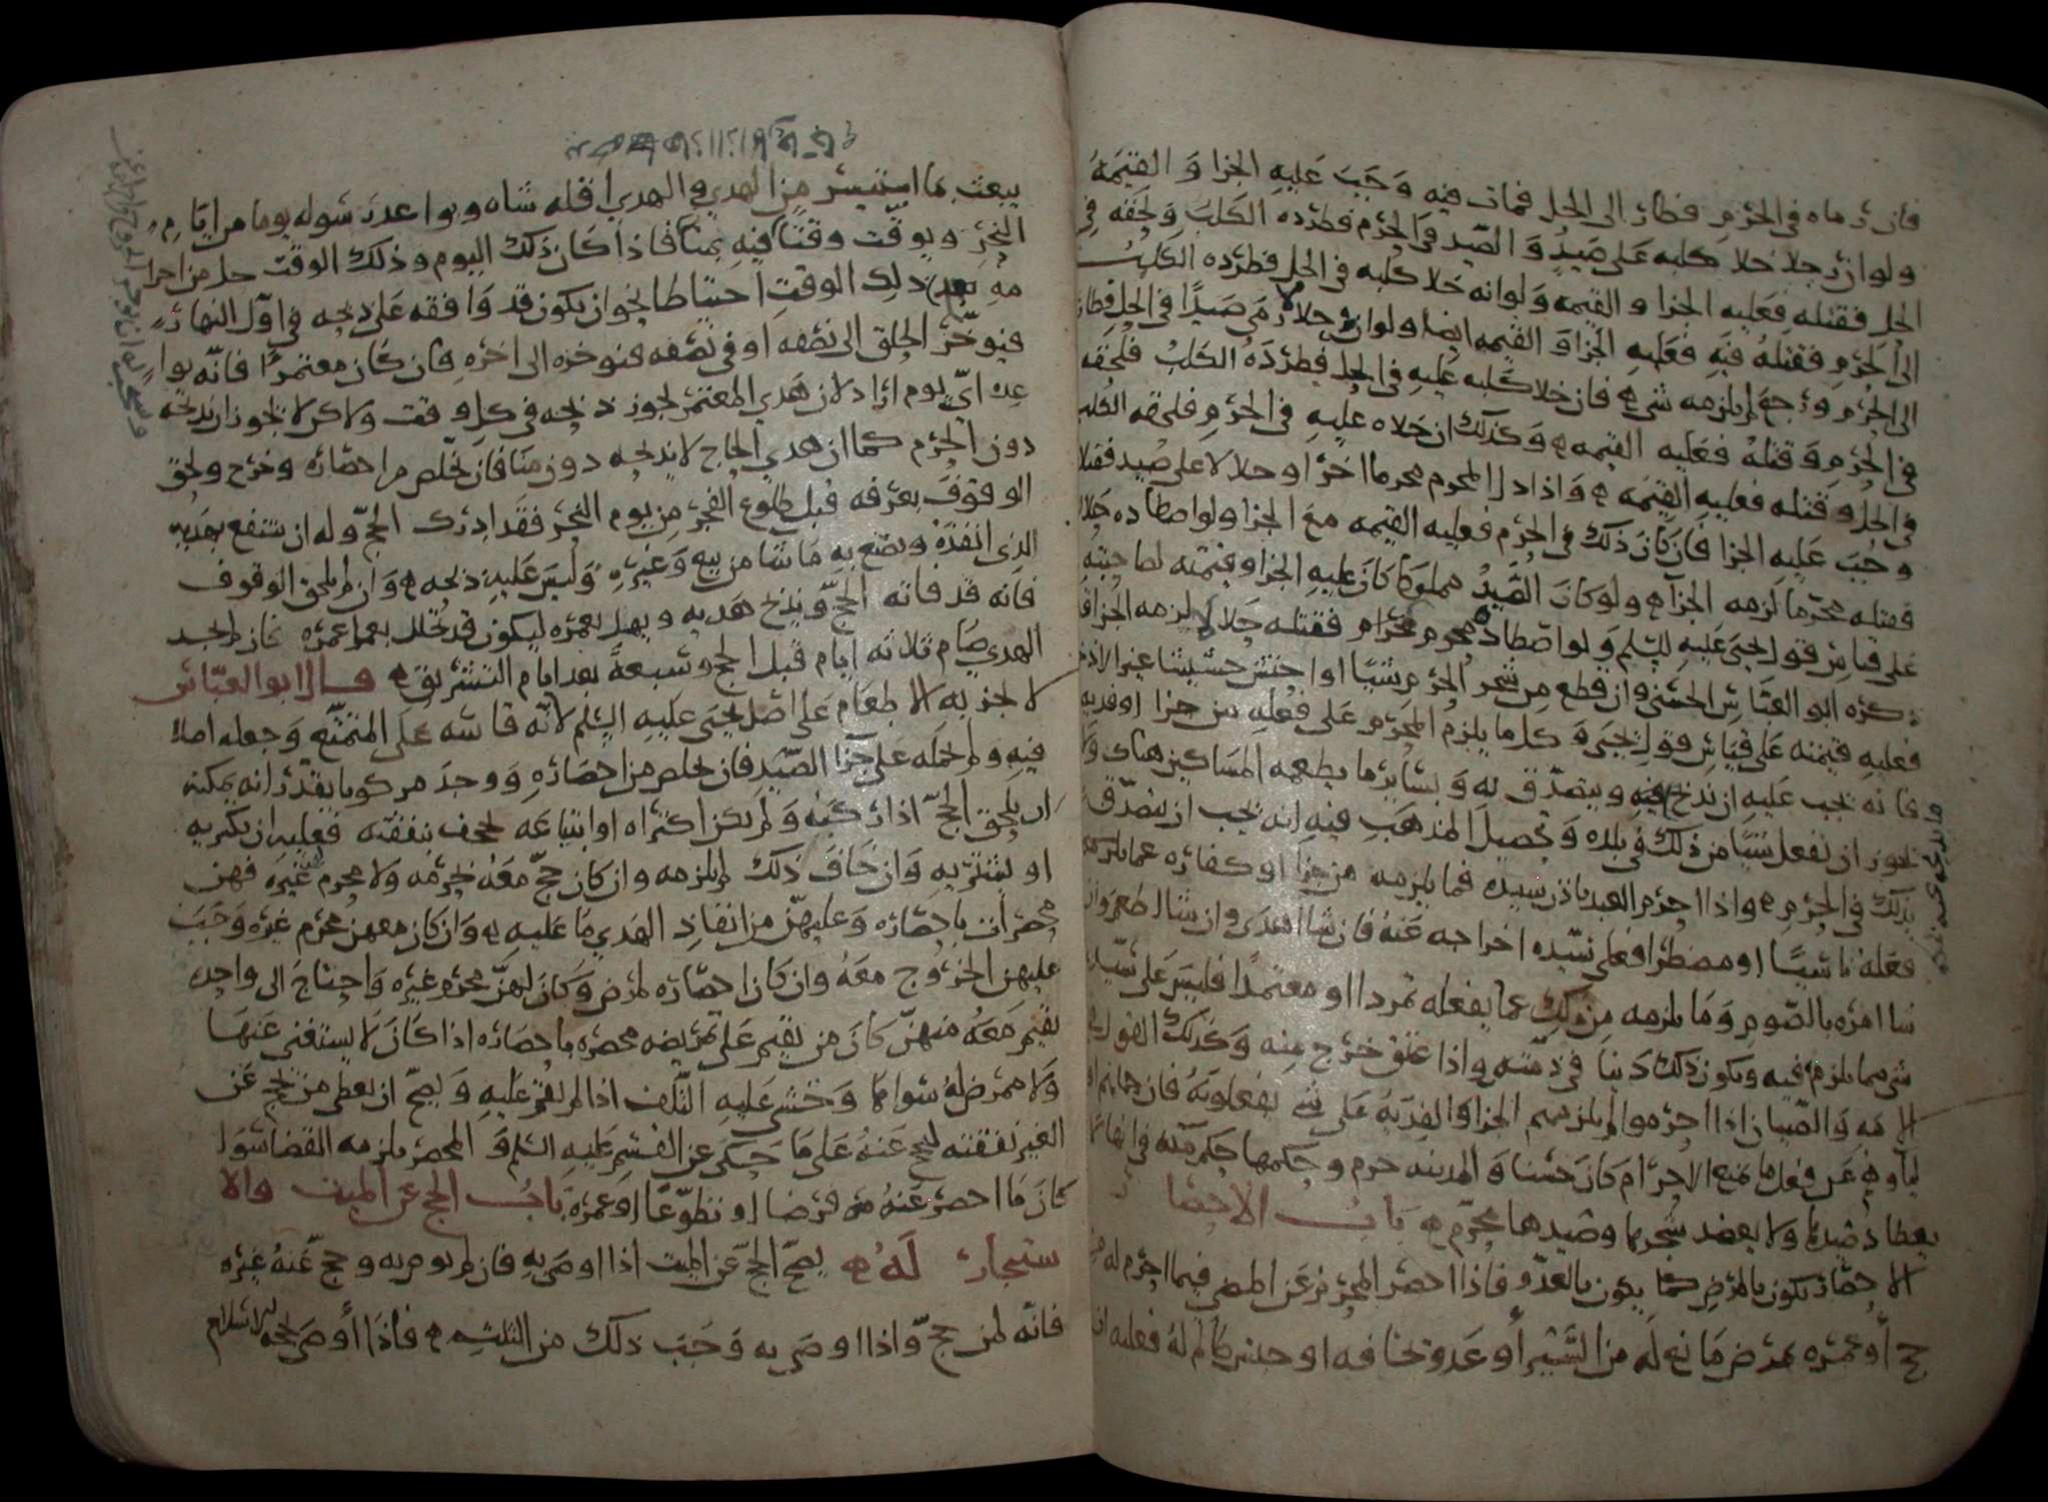 فان رماه في الحرم فطار الى الحل فمات فيه وجب عليه الجزا والقيمة
ولو ان رجلا خلا كلبه على صيد والصيد في الحرم فطرده الكلب ولحقه في
الحل فقتله فعليه الجزا والقيمه ولو انه خلا كلبه في الحل فطرده الكلب
الى الحرم فقتله فيه فعليه الجزا والقيمه ايضا ولو ان رجلا رمى صيدا في الحل فطار
الى الحرم ورجع لم يلزمه شي فان خلا كلبه عليه في الحل فطرده الكلب فلحقه
في الحرم وقتله فعليه القيمه وكذلك ان خلاه عليه في الحرم فلحقه الكلب
في الحل وقتله فعليه القيمه واذا دل المحرم محرما اخر او حلالا على صيد فقتله
وجب عليه الجزا فان كان ذلك في الحرم فعليه القيمه مع الجزا ولو اصطاده حلالا
فقتله محرما لزمه الجزا ولو كان الصيد مملوكا كان عليه الجزا وقيمته لصاحبه
على قياس قول يحيى عليه السلم ولو اصطاده محرم فقتله حلال لم يلزمه الجزا
ذكره ابو العباس الحسني وان قطع من شجر الحرم شيا او احتش حشيشا غير الاذخر
فعليه قيمته على قياس قول يحيى وكل ما يلزم المحرم على فعله من جزا او فديه
فانه يجب عليه ان يذبح فيه ويتصدق به وبساير ما يطعمه المساكين هناك ولا
يجوز ان يفعل شيا من ذلك في بلده وتحصيل المذهب فيه انه يجب ان يتصدق
بذلك في الحرم واذا احرم العبد باذن سيده فما يلزمه من جزا او كفاره عما
فعله ناسيا او مضطرا فعلى سيده اخراجه عنه فان شا اهدى وان شا اطعم وان
شا امره بالصوم وما يلزمه من ذلك عما يفعله تمردا او معتمدا فليس على سيده
شي مما يلزم فيه ويكون ذلك دينا في ذمته واذا عتق خرج منه وكذلك القول في
الامه والصبيان اذا احرموا لم يلزمهم الجزا والفديه على شي يفعلونه فان
عن فعل ما يمنع الاحرام كان حسنا والمدينه حرم وحكمها حكم مكه في انها لا
يصطاد صيدها ولا يعضد شجرها وصيدها محرم باب الاحصار
الاحصار يكون بالمرض كما يكون بالعدو فاذا احصر المحرم عن المضي فيما احرم له من
حج او عمره بمرض مانع له من السير او عدو يخافه او حبس ظالم له فعليه ان
يبعث بما استيسر من الهدي والهدي اقله شاه ويواعد رسوله يوما من ايام
النحر ويوقت وقتا فيه بمنا فاذا كان ذلك اليوم وذلك الوقت حل من احرا
مه بعد ذلك الوقت احتياطا نحو ان يكون قد وافقه على ذبحه في اول النهار
فيوخر الحلق الى نصفه او في نصفه فيوخره الى اخره فان كان معتمرا فانه يوا
عده اي يوم اراد لان هدي المعتمر يجوز ذبحه في كل وقت ولاكن لا يجوز ان يذبحه
دون الحرم كما ان هدي الحاج لا يذبحه دون منا فان تخلص من احصاره وخرج ولحق
الوقوف بعرفه قبل طلوع الفجر من يوم النحر فقد ادرك الحج وله ان ينتفع بهديه
الذي انفذه ويصنع به ما شا من بيع وغيره وليس عليه ذبحه وان لم يلحق الوقوف
فانه قد فاته الحج ويذبح هديه ويهل بعمره ليكون قد تحلل بعمل عمره فان لم يجد
الهدي صام ثلاثه ايام قبل الحج وسبعة بعد ايام التشريق قال ابو العباس
لا يجزيه الا طعام على اصل يحيى عليه السلم لانه قاسه على المتمتع وجعله اصلا
فيه ولم يحمله على جزا الصيد فان تخلص من احصاره ووجد مركوبا يقدر انه يمكنه
ان يلحق الحج اذا ركبه ولم يكن اكتراه او ابتياعه يجحف بنفقته فعليه ان يكتريه
او يشتريه وان خاف ذلك لم يلزمه وان كان حج معه بحرمه ولا محرم غيره فهن
محصرات باحصاره وعليهن من انفاذ الهدي ما عليه وان كان معهن محرم غيره وجب
عليهن الخروج معه وان كان احصاره لمرض وكان لهن محرم غيره واحتاج الى واحده
تقيم معه منهن كان من يقيم على تمريضه محصره باحصاره اذا كان لا يستغني عنها
ولا ممرض له سواها وخشي عليه التلف اذا لم تقم عليه ويصح ان يعطى من لم يحج عن
الغير نفقته ليحج عنه على ما حكى عن القسم عليه السلم والمحصر يلزمه القضا سوا
كان ما احصر عنه من فرضا او تطوعا او عمرة باب الحج عن الميت والا
ستيجار له يصح الحج عن الميت اذا اوصى به فان لم يوص به وحج عنه غيره
فانه لمن حج واذا اوصى به وجب ذلك من الثلث فاذا اوصى بحجه الاسلام